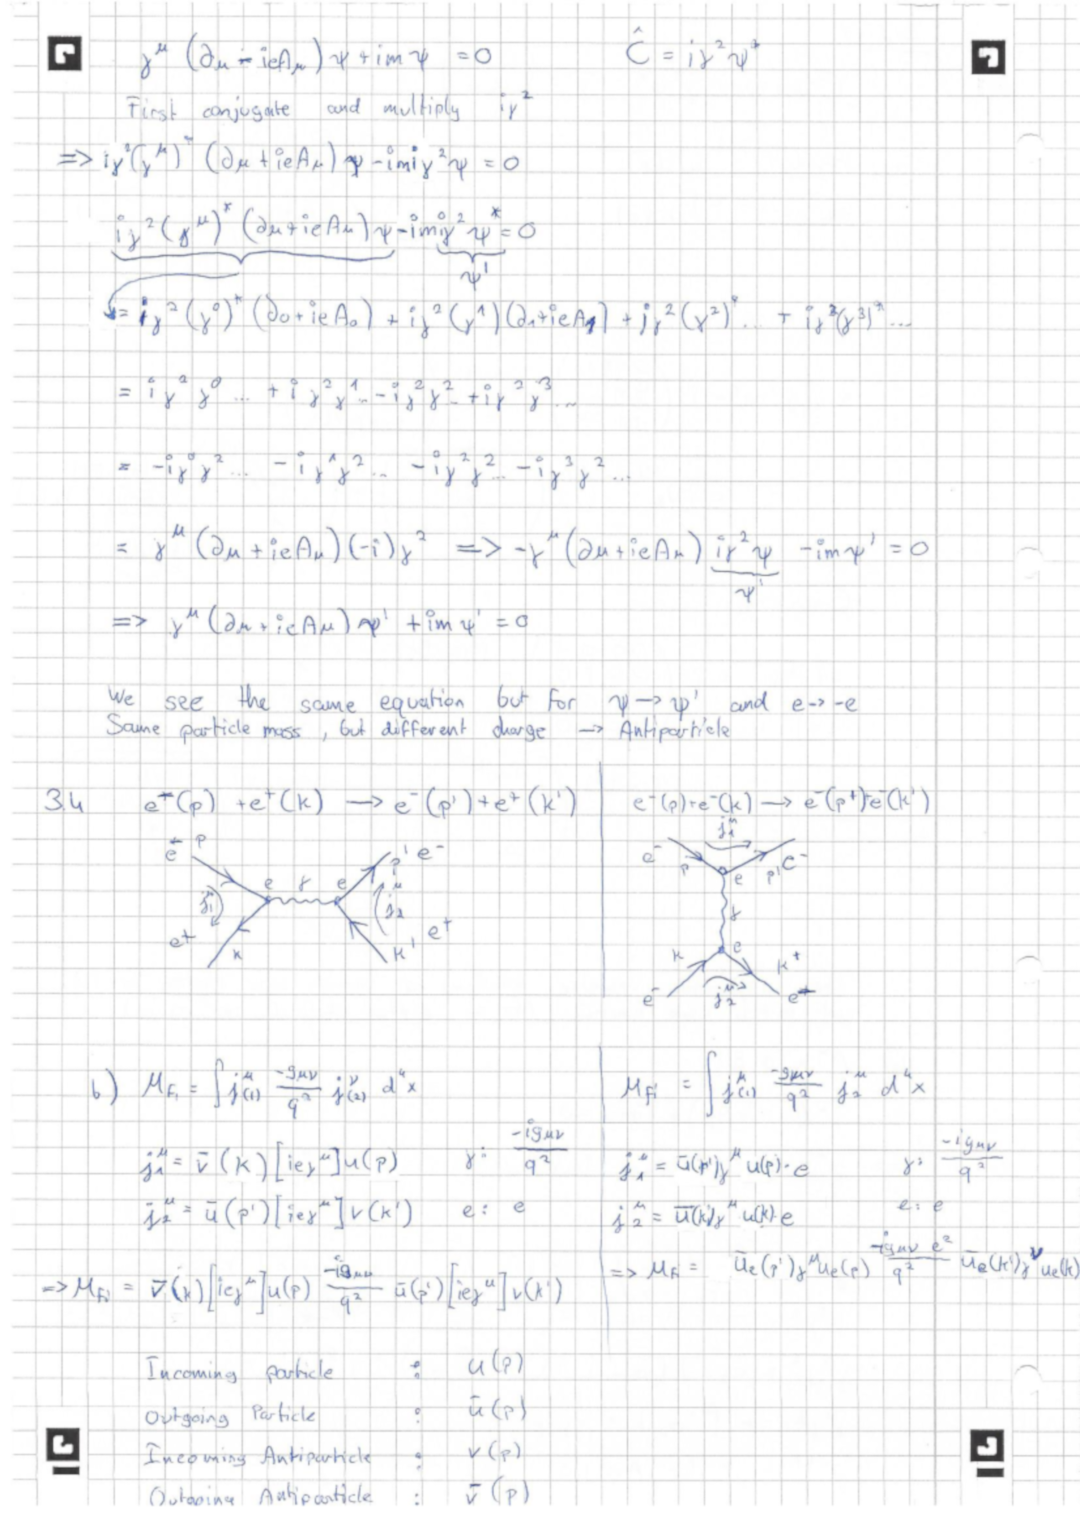 γ^μ (∂_μ - ieA_μ) ψ + im ψ = 0    Ĉ = iγ²ψ*
First conjugate and multiply iγ²
=> iγ²(γ^μ)* (∂_μ + ieA_μ) ψ - imiγ²ψ = 0
iγ²(γ^μ)* (∂_μ + ieA_μ) ψ - imiγ²ψ* = 0
ψ'
= iγ²(γ⁰)* (∂₀ + ieA₀) + iγ²(γ¹)(∂₁ + ieA₁) + iγ²(γ²)* ... + iγ²(γ³)* ...
= iγ²γ⁰ ... + iγ²γ¹ .. - iγ²γ² .. + iγ²γ³ ...
= -iγ⁰γ² ... - iγ¹γ² ... - iγ²γ² ... - iγ³γ² ...
= γ^μ (∂_μ + ieA_μ)(-i)γ² => -γ^μ (∂_μ + ieA_μ) iγ²ψ - imψ' = 0
ψ'
=> γ^μ (∂_μ + ieA_μ) ψ' + im ψ' = 0
We see the same equation but for ψ → ψ' and e -> -e
Same particle mass, but different charge → Antiparticle
3.4 e⁻(p) + e⁺(k) → e⁻(p') + e⁺(k')    e⁻(p) + e⁻(k) → e⁻(p⁺) + e⁻(k')
e⁻ p e γ e p' e⁻ j₁^μ j₂^μ e⁺ k k' e⁺
j₁^μ e⁻ p e p' e⁻ γ k e k⁺ e⁻ j₂^μ e⁻
b) M_Fi = ∫ j^μ_(1) -g_μν/q² j^ν_(2) d⁴x    M_Fi = ∫ j^μ_(1) -g_μν/q² j₂^μ d⁴x
j₁^μ = v̄(k)[ieγ^μ]u(p)    γ: -ig_μν/q²    j₁^μ = ū(p')γ^μ u(p)·e    γ: -ig_μν/q²
j₂^μ = ū(p')[ieγ^μ]v(k')    e: e    j₂^μ = ū(k')γ^μ u(k)·e    e: e
=> M_Fi = v̄(k)[ieγ^μ]u(p) -ig_μν/q² ū(p')[ieγ^μ]v(k')    => M_Fi = ū_e(p')γ^μ u_e(p) -ig_μν e²/q² ū_e(k')γ^ν u_e(k)
Incoming particle : u(p)
Outgoing Particle : ū(p)
Incoming Antiparticle : v(p)
Outgoing Antiparticle : v̄(p)